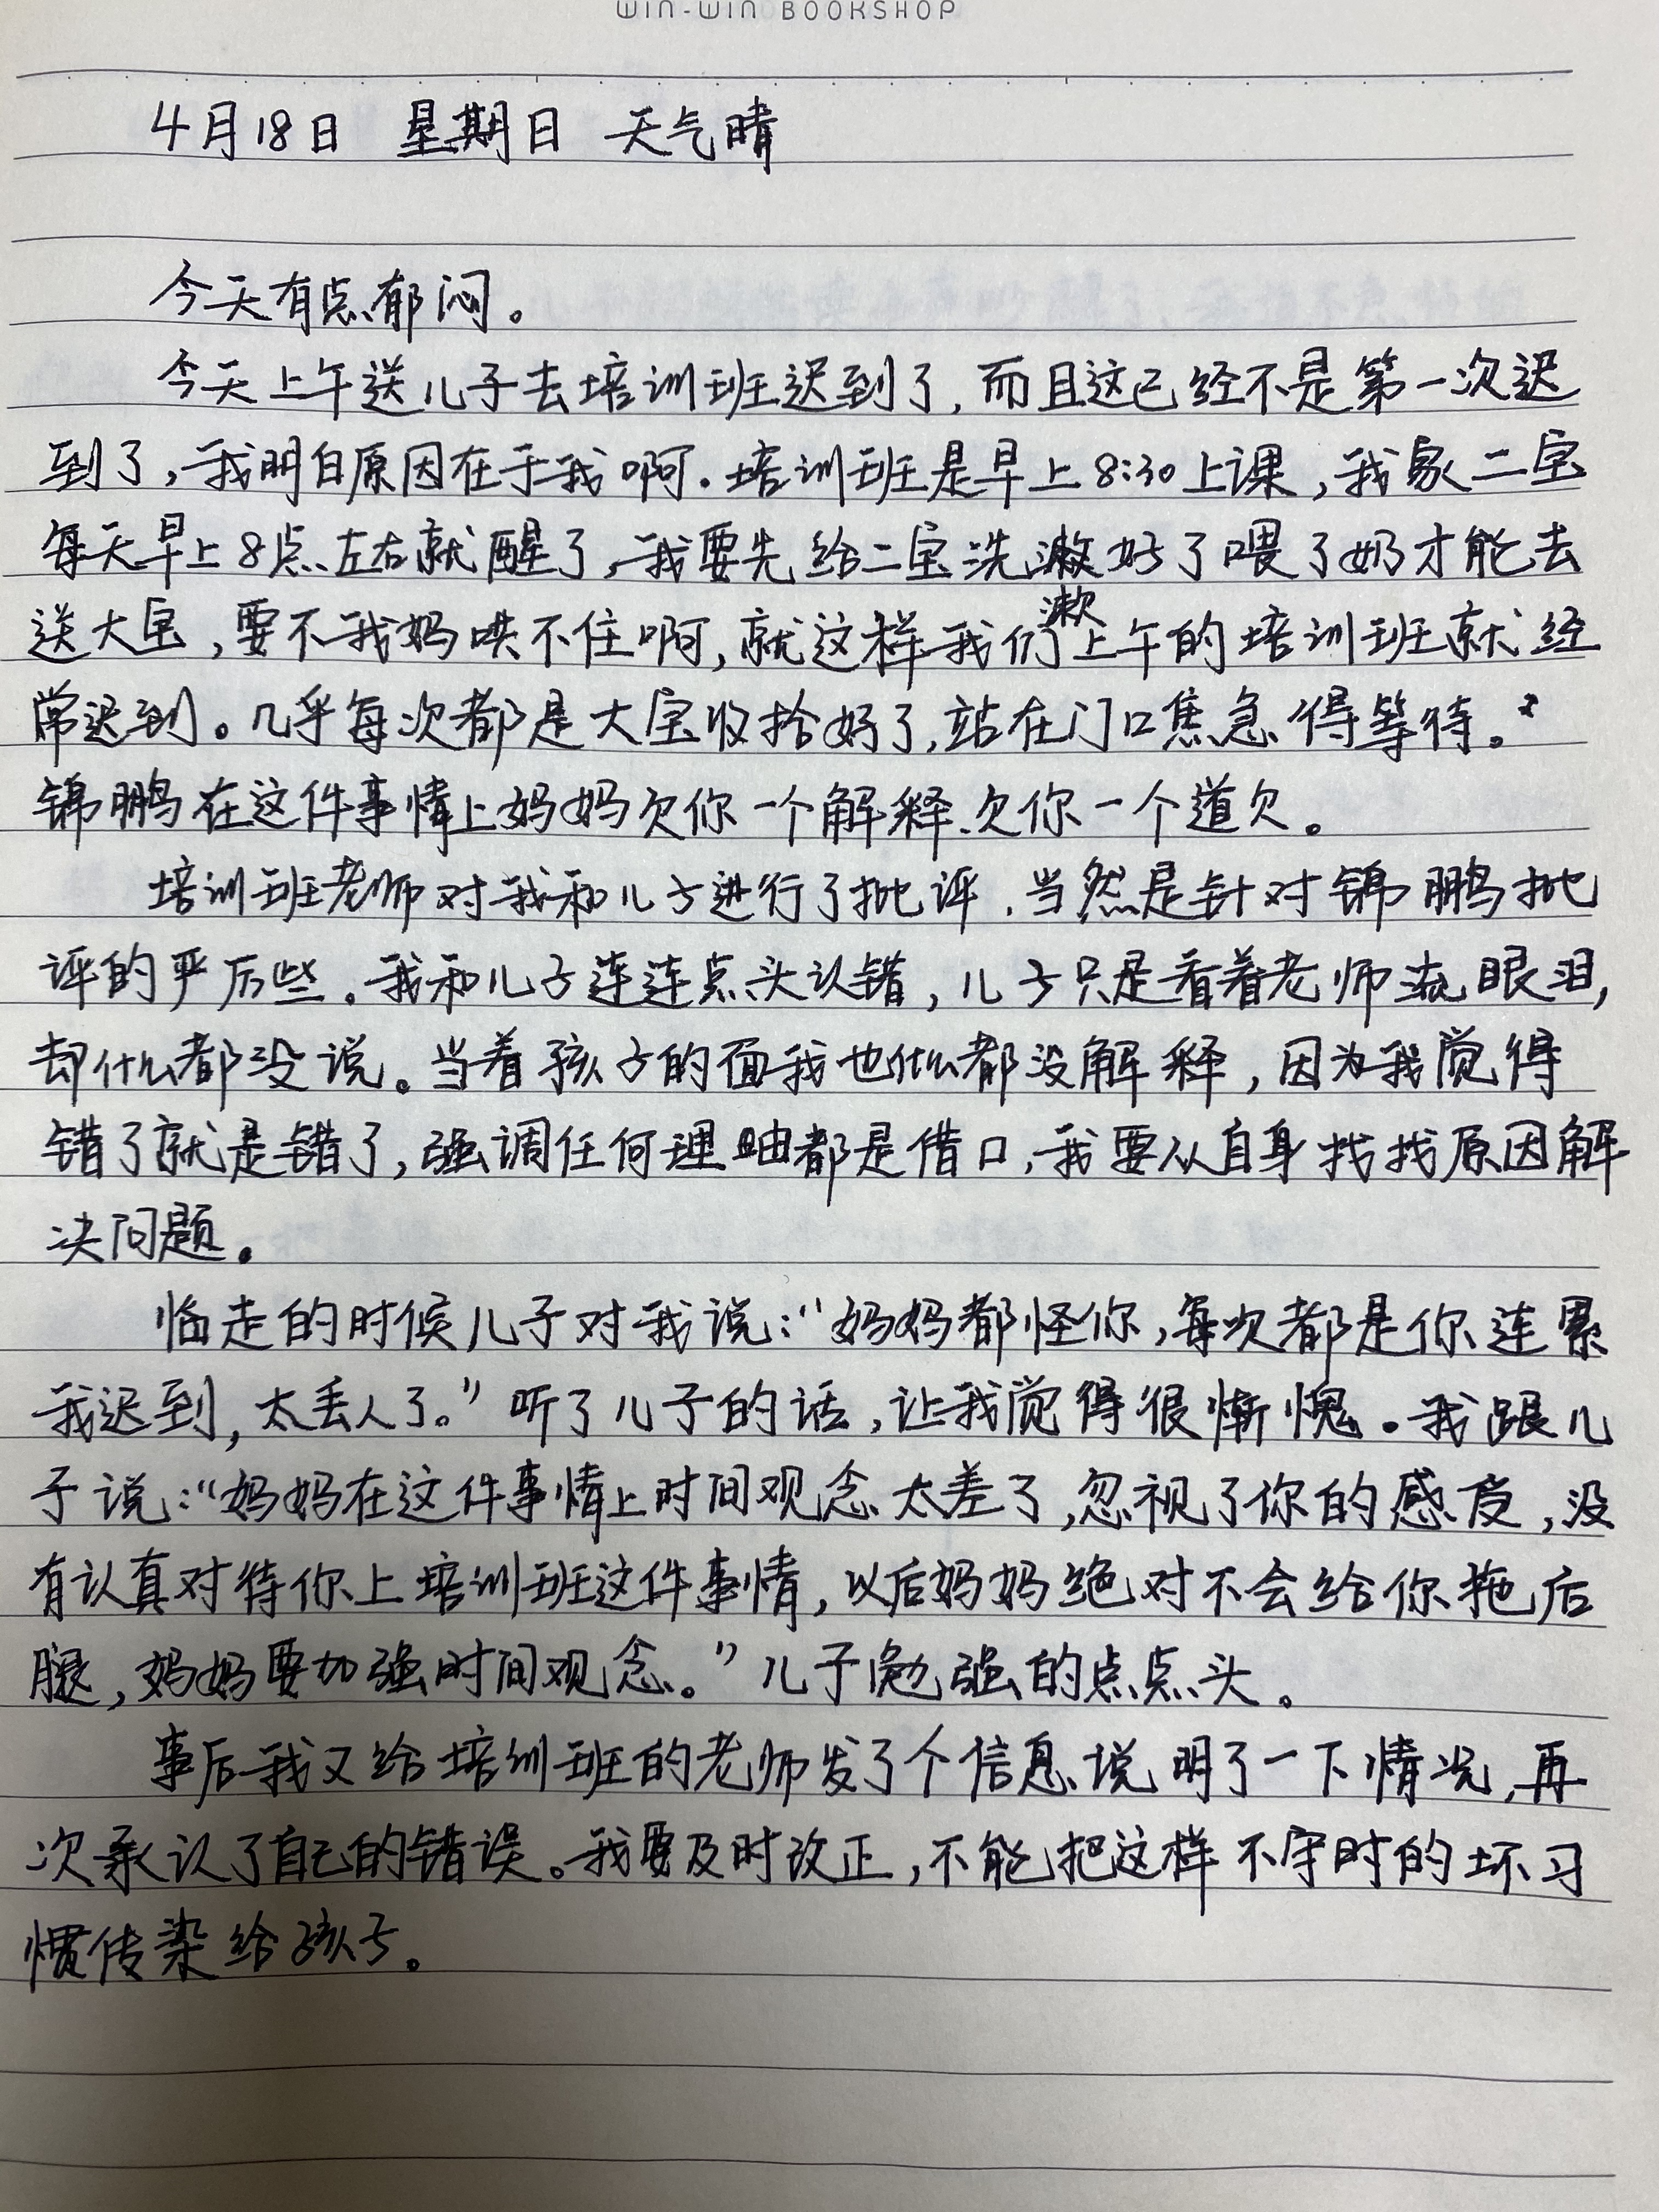 WIN-WIN BOOKSHOP
4月18日 星期日 天气晴
今天有点郁闷。
今天上午送儿子去培训班迟到了,而且这已经不是第一次迟
到了,我明白原因在于我啊。培训班是早上8:30上课,我家二宝
每天早上8点左右就醒了,我要先给二宝洗漱好了喂了奶才能去
漱
送大宝,要不我妈哄不住啊,就这样我们上午的培训班就经
常迟到。几乎每次都是大宝收拾好了,站在门口焦急得等待。
锦鹏在这件事情上妈妈欠你一个解释、欠你一个道欠。
培训班老师对我和儿子进行了批评,当然是针对锦鹏批
评的严厉些。我和儿子连连点头认错,儿子只是看着老师流眼泪,
却什么都没说。当着孩子的面我也什么都没解释,因为我觉得
错了就是错了,强调任何理由都是借口,我要从自身找找原因解
决问题。
临走的时候儿子对我说:“妈妈都怪你,每次都是你连累
我迟到,太丢人了。”听了儿子的话,让我觉得很惭愧。我跟儿
子说:“妈妈在这件事情上时间观念太差了,忽视了你的感受,没
有认真对待你上培训班这件事情,以后妈妈绝对不会给你拖后
腿,妈妈要加强时间观念。”儿子勉强的点点头。
事后我又给培训班的老师发了个信息说明了一下情况,再
次承认了自己的错误。我要及时改正,不能把这样不守时的坏习
惯传染给孩子。